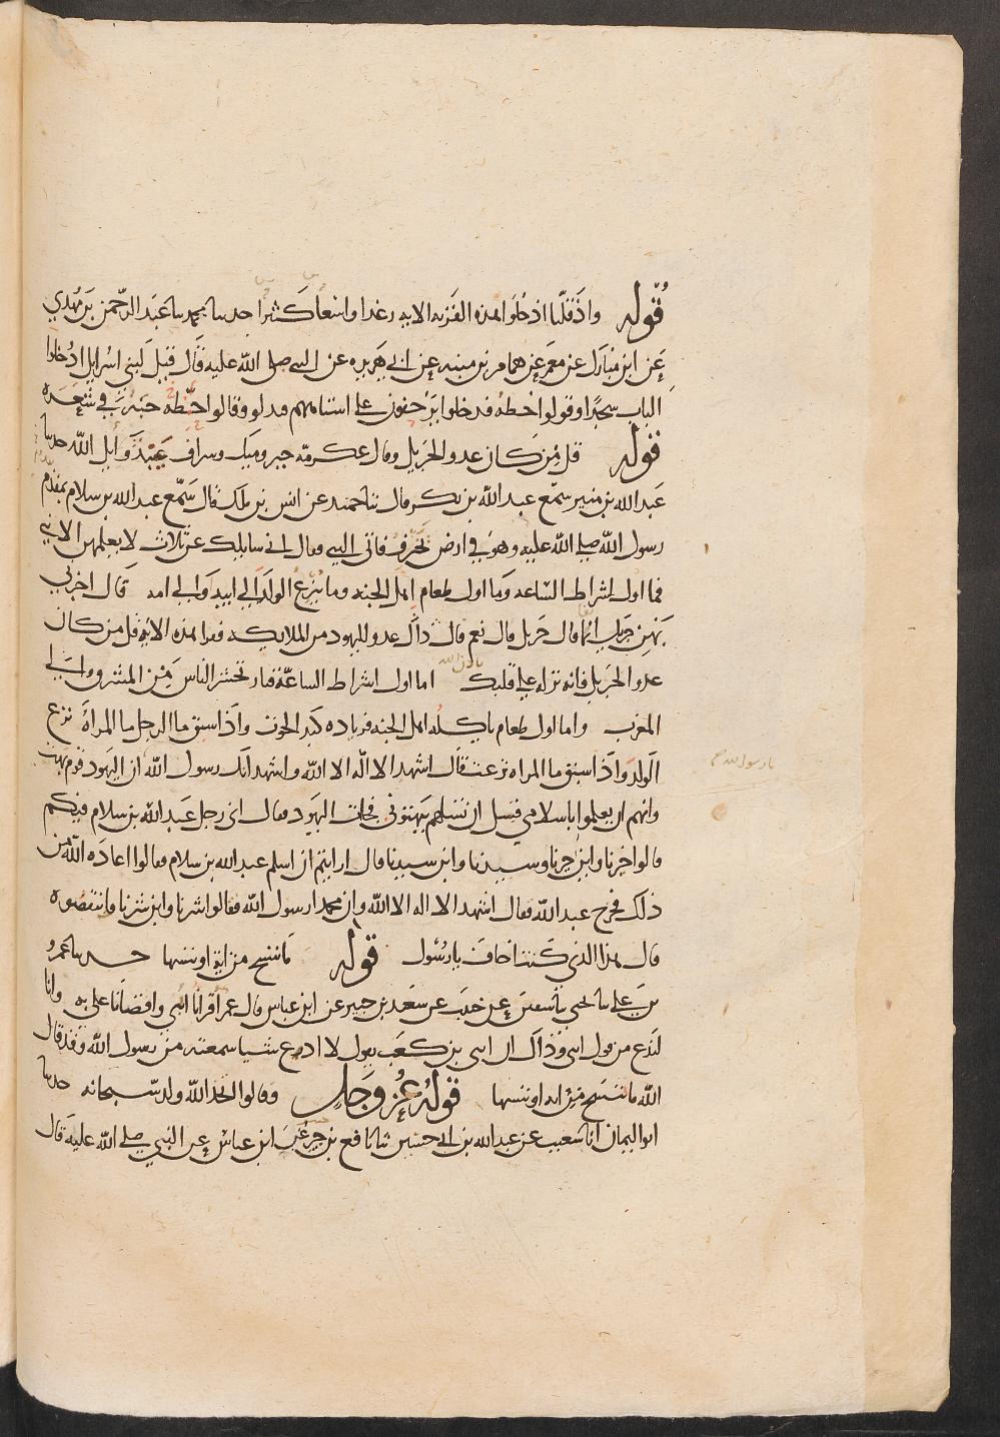 قوله واذ قلنا ادخلوا هذه القريه الايه رغدا واسعا كثيرا حدثنا محمد نا عبد الرحمن بن مهدي
عن ابن مبارك عن معمر عن همام بن منبه عن ابي هريره عن النبي صلى الله عليه قال قيل لبني اسرايل ادخلوا
الباب سجدا وقولوا حطه فدخلوا يزحفون على استاههم فبدلوا وقالوا حنطه حبه في شعره
قوله قل من كان عدوا لجبريل وقال عكرمه جبر وميك وسراف عبد وايل الله حدثنا
عبد الله بن منير سمع عبد الله بن بكر قال نا حميد عن انس بن ملك قال سمع عبد الله بن سلام بمقدم
رسول الله صلى الله عليه وهو في ارض يخترف فاتى النبي فقال اني سايلك عن ثلاث لا يعلمهن الا نبي
فما اول اشراط الساعه وما اول طعام اهل الجنه وما ينزع الولد الى ابيه او الى امه قال اخبرني
بهن جبريل انفا قال جبريل قال نعم قال ذاك عدو اليهود من الملايكه فقرا هذه الايه قل من كان
عدوا لجبريل فانه نزله على قلبك باذن الله اما اول اشراط الساعه فنار تحشر الناس من المشرق الى
المغرب واما اول طعام ياكله اهل الجنه فزياده كبد الحوت واذا سبق ما الرجل ما المراه نزع
الولد واذا سبق ما المراه نزعت قال اشهد الا اله الا الله واشهد انك رسول الله ان اليهود قوم بهت
وانهم ان يعلموا باسلامي قبل ان تسلهم يبهتوني فجات اليهود فقال اي رجل عبد الله بن سلام فيكم
قالوا خيرنا وابن خيرنا وسيدنا وابن سيدنا قال ارايتم ان اسلم عبد الله بن سلام فقالوا اعاذه الله من
ذلك فخرج عبد الله فقال اشهد الا اله الا الله وان محمدا رسول الله فقالوا شرنا وابن شرنا وانتقصوه
قال هذا الذي كنت اخاف يا رسول قوله ما ننسخ من ايه او ننسها حدثنا عمرو
بن علي نا يحيى نا سفين عن حبيب عن سعيد بن جبير عن ابن عباس قال عمر اقرانا ابي واقضانا علي وانا
لندع من قول ابي وذاك ان ابي بن كعب يقول لا ادع شيا سمعته من رسول الله وقد قال
الله ما ننسخ من ايه او ننسها قوله عز وجل وقالوا اتخذ الله ولدا سبحانه حدثنا
ابو اليمان انا شعيب عن عبد الله بن ابي حسين نا نافع بن جبير عن ابن عباس عن النبي صلى الله عليه قال
يا رسول الله